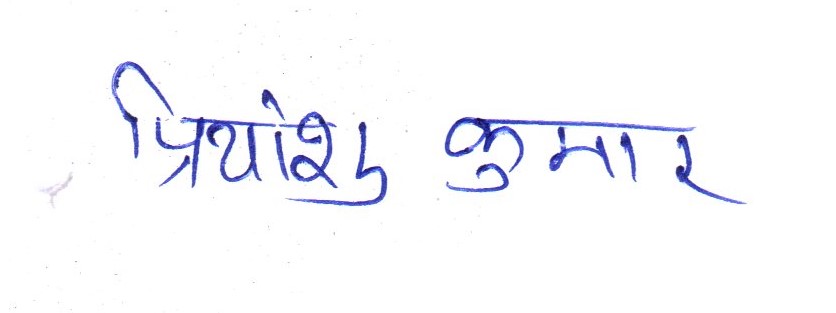 प्रियांशु कुमार